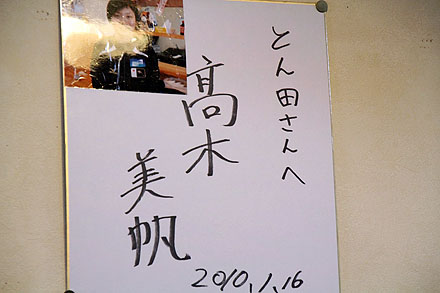 とん田さんへ
髙木
美帆
2010,1,16